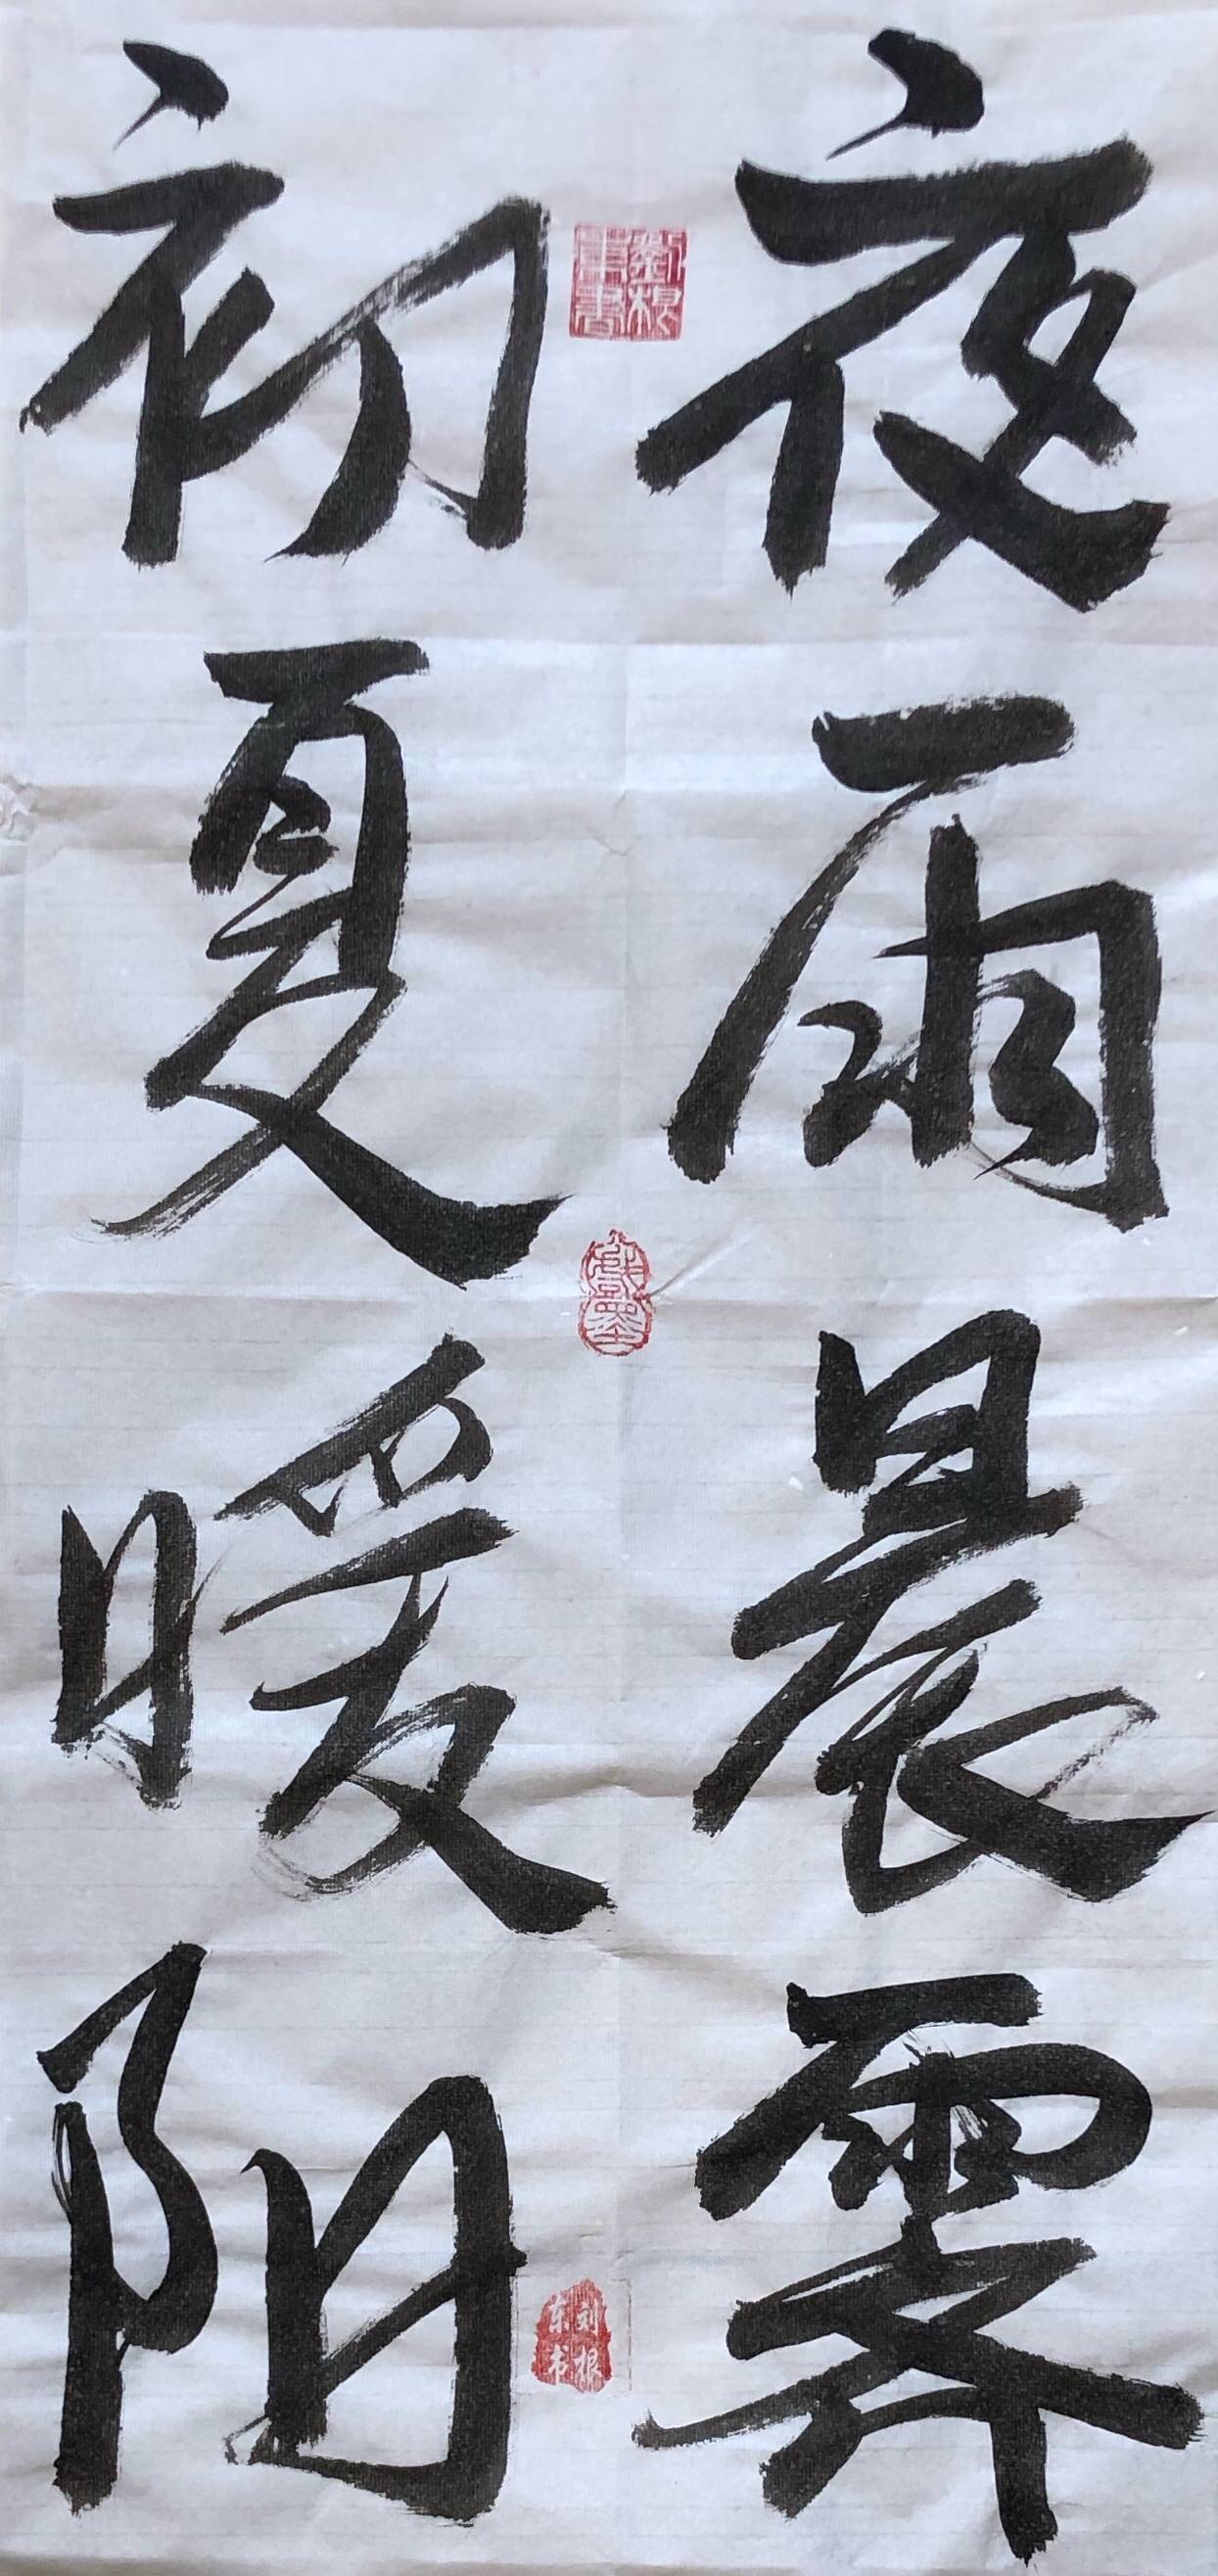 夜雨晨霁
初夏暖阳
刘根
东书